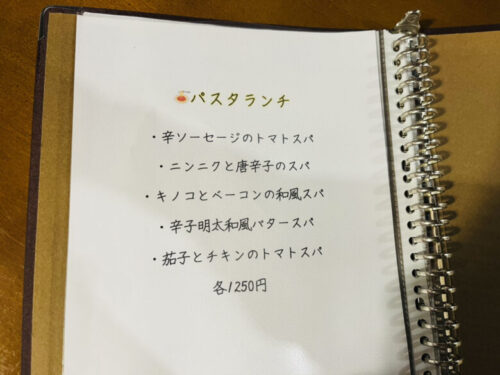 パスタランチ
・辛ソーセージのトマトスパ
・ニンニクと唐辛子のスパ
・キノコとベーコンの和風スパ
・辛子明太和風バタースパ
・茄子とチキンのトマトスパ
各1250円